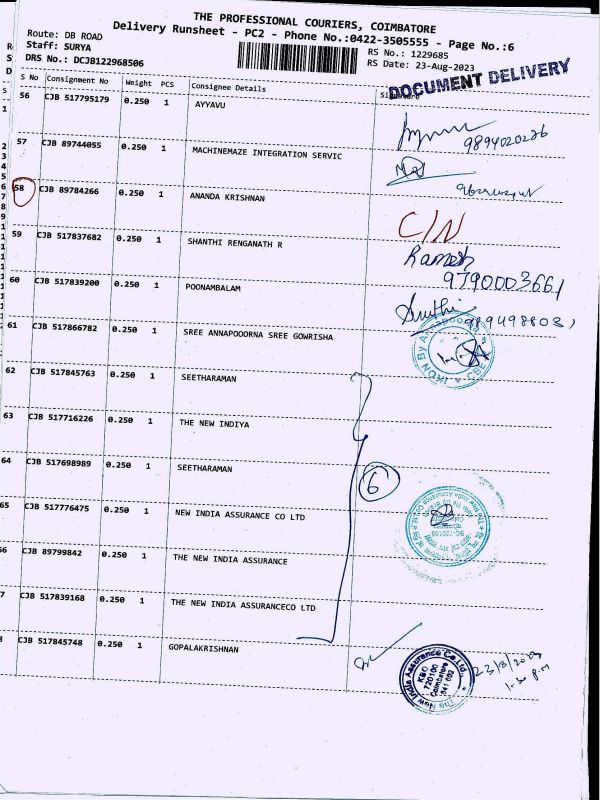 THE PROFESSIONAL COURIERS, COIMBATORE
Delivery Runsheet - PC2 - Phone No.:0422-3505555 - Page No.:6
Route: DB ROAD
Staff: SURYA
RS No.: 1229685
DRS No.: DCJB122968506
RS Date: 23-Aug-2023
DOCUMENT DELIVERY
S No Consignment No Weight PCS Consignee Details
56 CJB 517795179 0.250 1 AYYAVU
9894020226
57 CJB 89744055 0.250 1 MACHINEMAZE INTEGRATION SERVIC
58 CJB 89784266 0.250 1 ANANDA KRISHNAN
C/N
59 CJB 517837682 0.250 1 SHANTHI RENGANATH R
Ramesh
9790003661
60 CJB 517839200 0.250 1 POONAMBALAM
61 CJB 517866782 0.250 1 SREE ANNAPOOORNA SREE GOWRISHA
62 CJB 517845763 0.250 1 SEETHARAMAN
63 CJB 517716226 0.250 1 THE NEW INDIYA
64 CJB 517698989 0.250 1 SEETHARAMAN
6
65 CJB 517776475 0.250 1 NEW INDIA ASSURANCE CO LTD
66 CJB 89799842 0.250 1 THE NEW INDIA ASSURANCE
7 CJB 517839168 0.250 1 THE NEW INDIA ASSURANCECO LTD
CJB 517845748 0.250 1 GOPALAKRISHNAN
The New India Assurance Co. Ltd.
KBO
720100
Coimbatore
641 002
23/8/2023
1.30 P.M